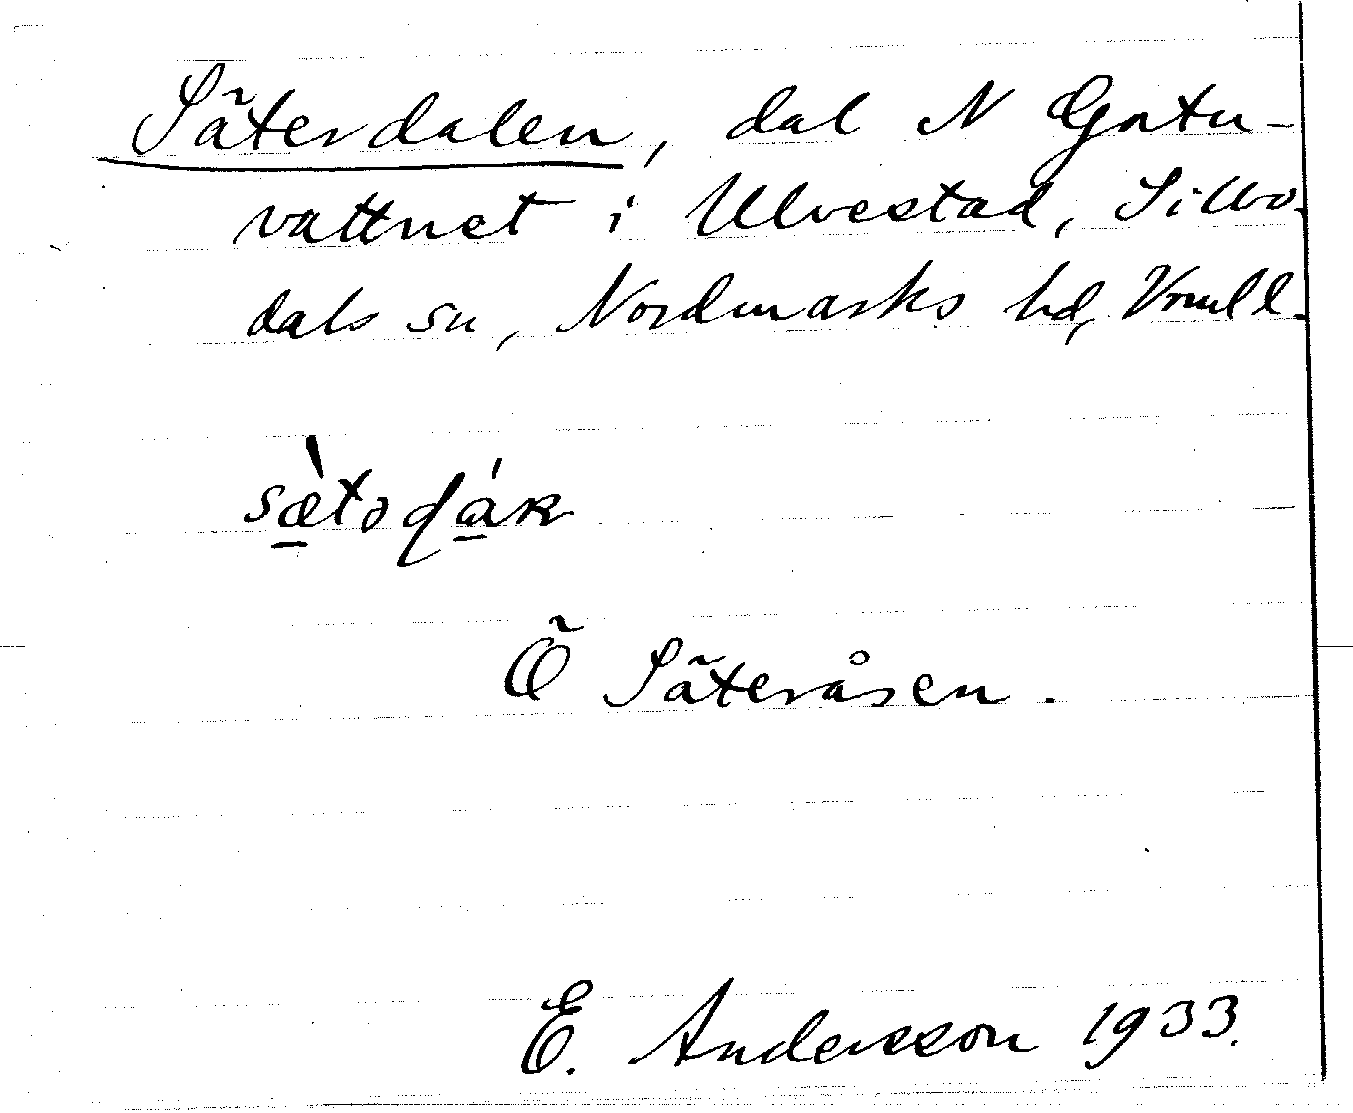 Säterdalen, dal N Gatu-
vattnet i Ulvestad, Sillbo-
dals sn, Nordmarks hd, Vrmll.
Ö Säteråsen.
E. Andersson 1933.